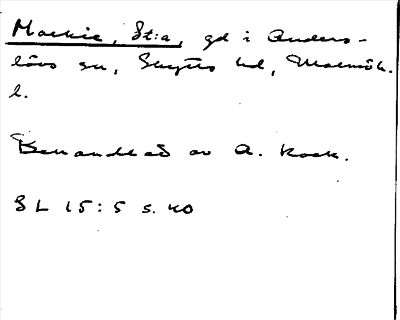 Markie, St:a, gd i Anders-
lövs sn, Skytts hd, Malmöh.
l.
Behandlad av A. Kock.
SL 15:5 s. 40